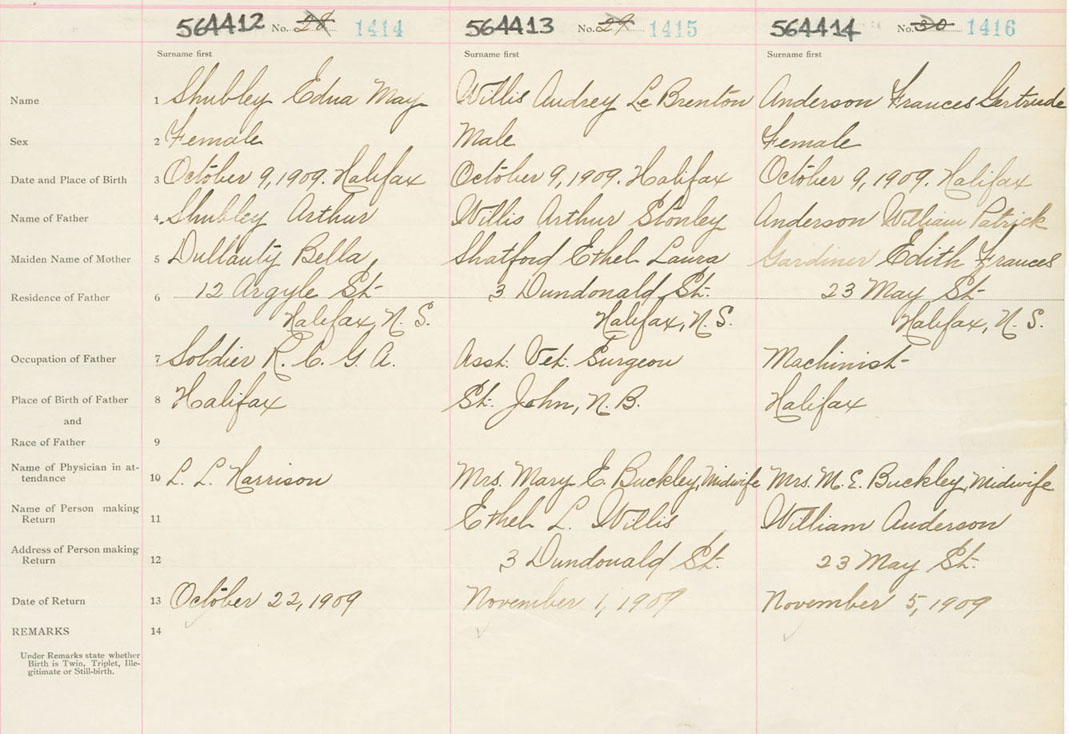 564412 No. 28 1414 564413 No. 29 1415 564414 No. 30 1416
Surname first Surname first Surname first
Name 1 Shubley Edna May Willis Audrey Le Brenton Anderson Frances Gertrude
Sex 2 Female Male Female
Date and Place of Birth 3 October 9, 1909. Halifax October 9, 1909. Halifax October 9, 1909. Halifax
Name of Father 4 Shubley Arthur Willis Arthur Stonley Anderson William Patrick
Maiden Name of Mother 5 Dullauty Bella, Shatford Ethel Laura Gardiner Edith Frances
Residence of Father 6 12 Argyle St. 3 Dundonald St. 23 May St.
Halifax, N. S. Halifax, N. S. Halifax, N. S.
Occupation of Father 7 Soldier R. C. G. A. Asst. Vet. Surgeon Machinist
Place of Birth of Father 8 Halifax St. John, N. B. Halifax
and
Race of Father 9
Name of Physician in at-
tendance 10 L. L. Harrison Mrs. Mary E. Buckley, Midwife Mrs. M. E. Buckley, Midwife
Name of Person making
Return 11 Ethel L. Willis William Anderson
Address of Person making
Return 12 3 Dundonald St. 23 May St.
Date of Return 13 October 22, 1909 November 1, 1909 November 5, 1909
REMARKS 14
Under Remarks state whether
Birth is Twin, Triplet, Ille-
gitimate or Still-birth.